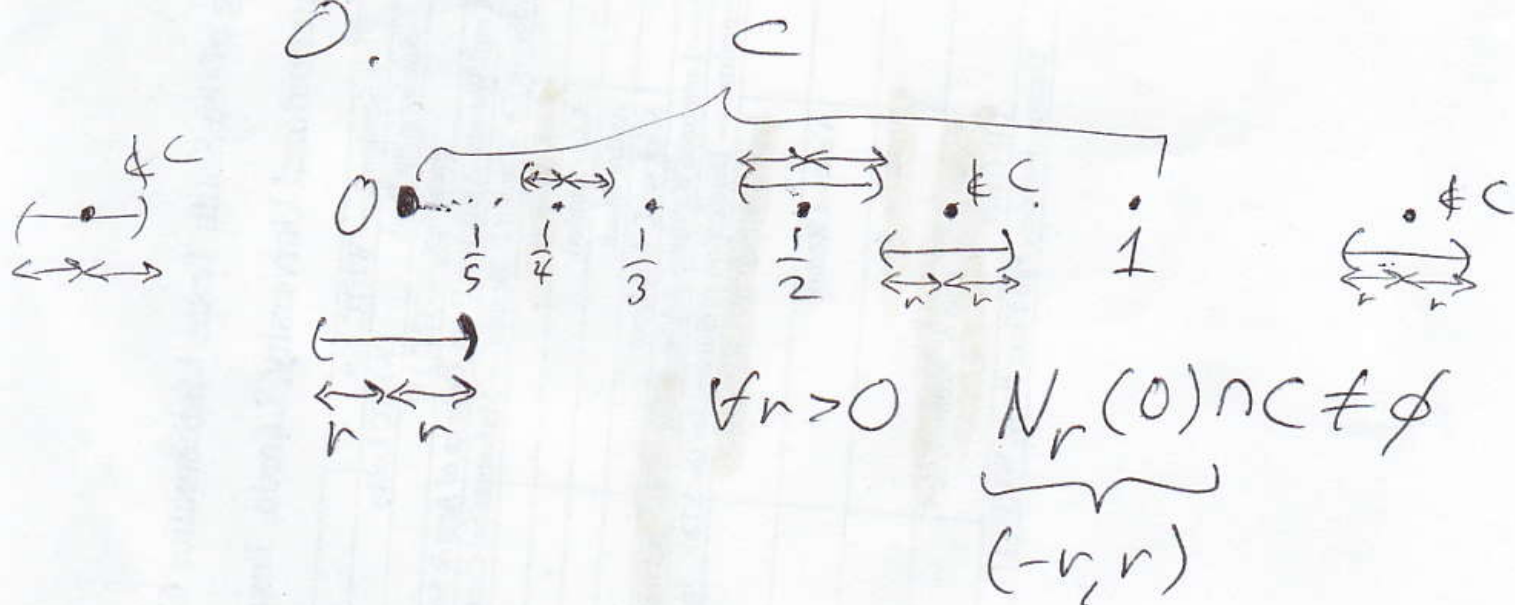 0.
C
∉ C
0
1/5 1/4 1/3 1/2 ∉ C 1 ∉ C
r r r r
r r
∀r>0 N_r(0)∩C≠∅
(-r,r)